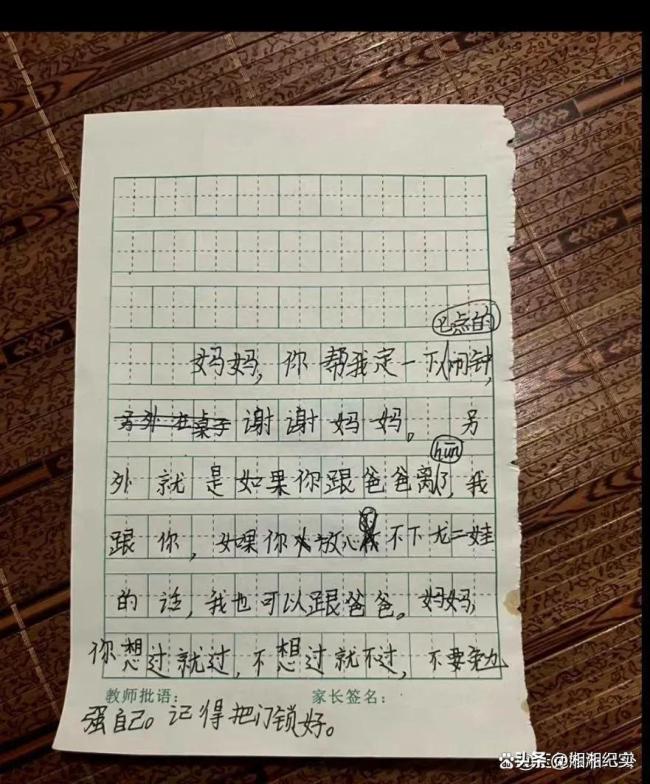 七点的
妈妈,你帮我定一下闹钟,
另外在桌子谢谢妈妈。另
hūn
外就是如果你跟爸爸离了,我
跟你,如果你放心不下尤二娃
的话,我也可以跟爸爸。妈妈,
你想过就过,不想过就不过,不要勉
教师批语: 家长签名:
强自己。记得把门锁好。
头条 @湘湘纪实